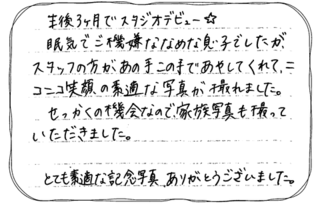 生後3ヶ月でスタジオデビュー☆
眠気でご機嫌ななめな息子でしたが、
スタッフの方があの手この手であやしてくれて、ニ
コニコ笑顔の素適な写真が撮れました。
せっかくの機会なので、家族写真も撮って
いただきました。
とても素適な記念写真、ありがとうございました。